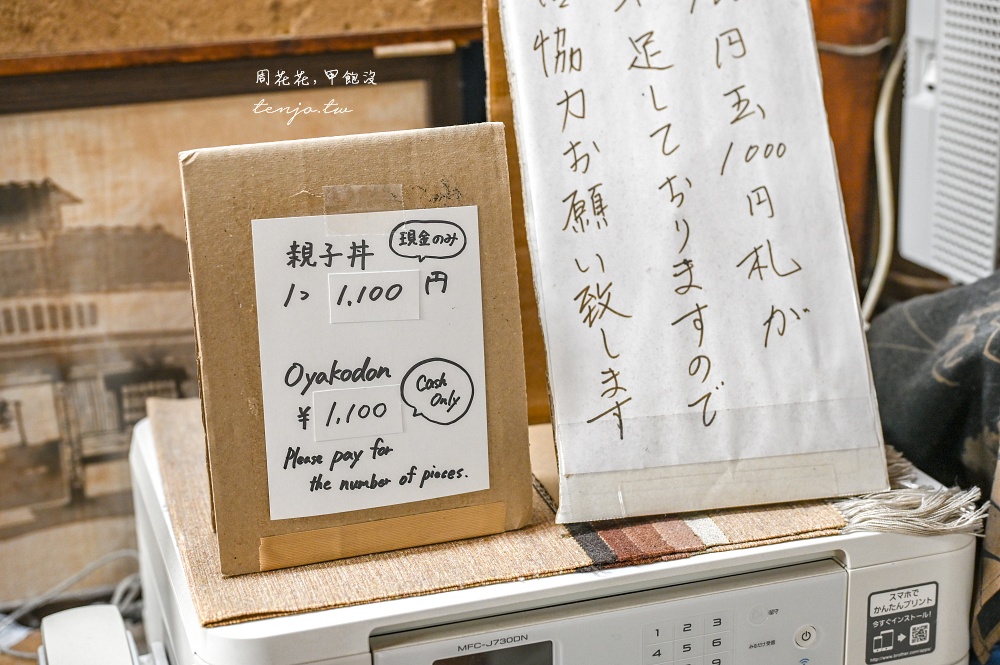 周花花,甲飽沒
tenjo.tw
親子丼
現金のみ
1つ 1,100 円
Oyakodon
Cash
Only
¥ 1,100
Please pay for
the number of pieces.
円玉1000円札が
足しておりますので
協力お願い致します
MFC-J730DN
1 2 3
4 5 6
スマホで
かんたんプリント
今すぐインストール!